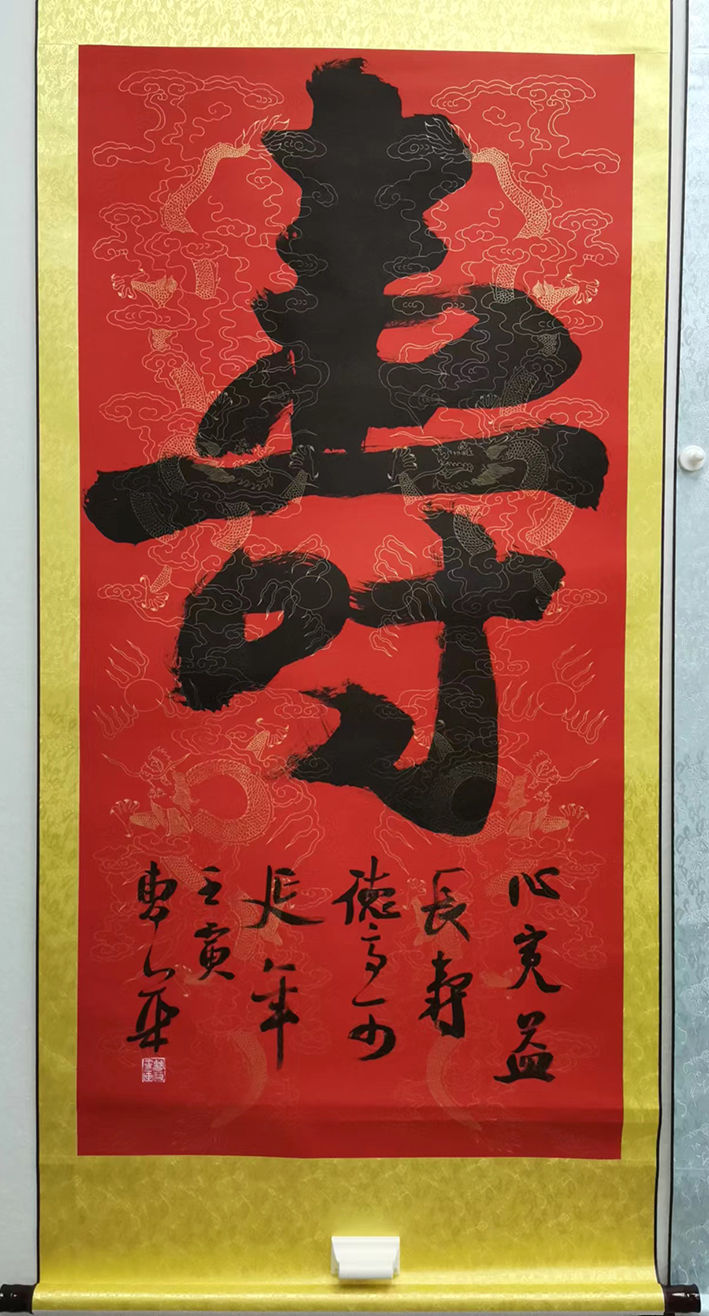 壽
心寬益
長壽
德高可
延年
壬寅